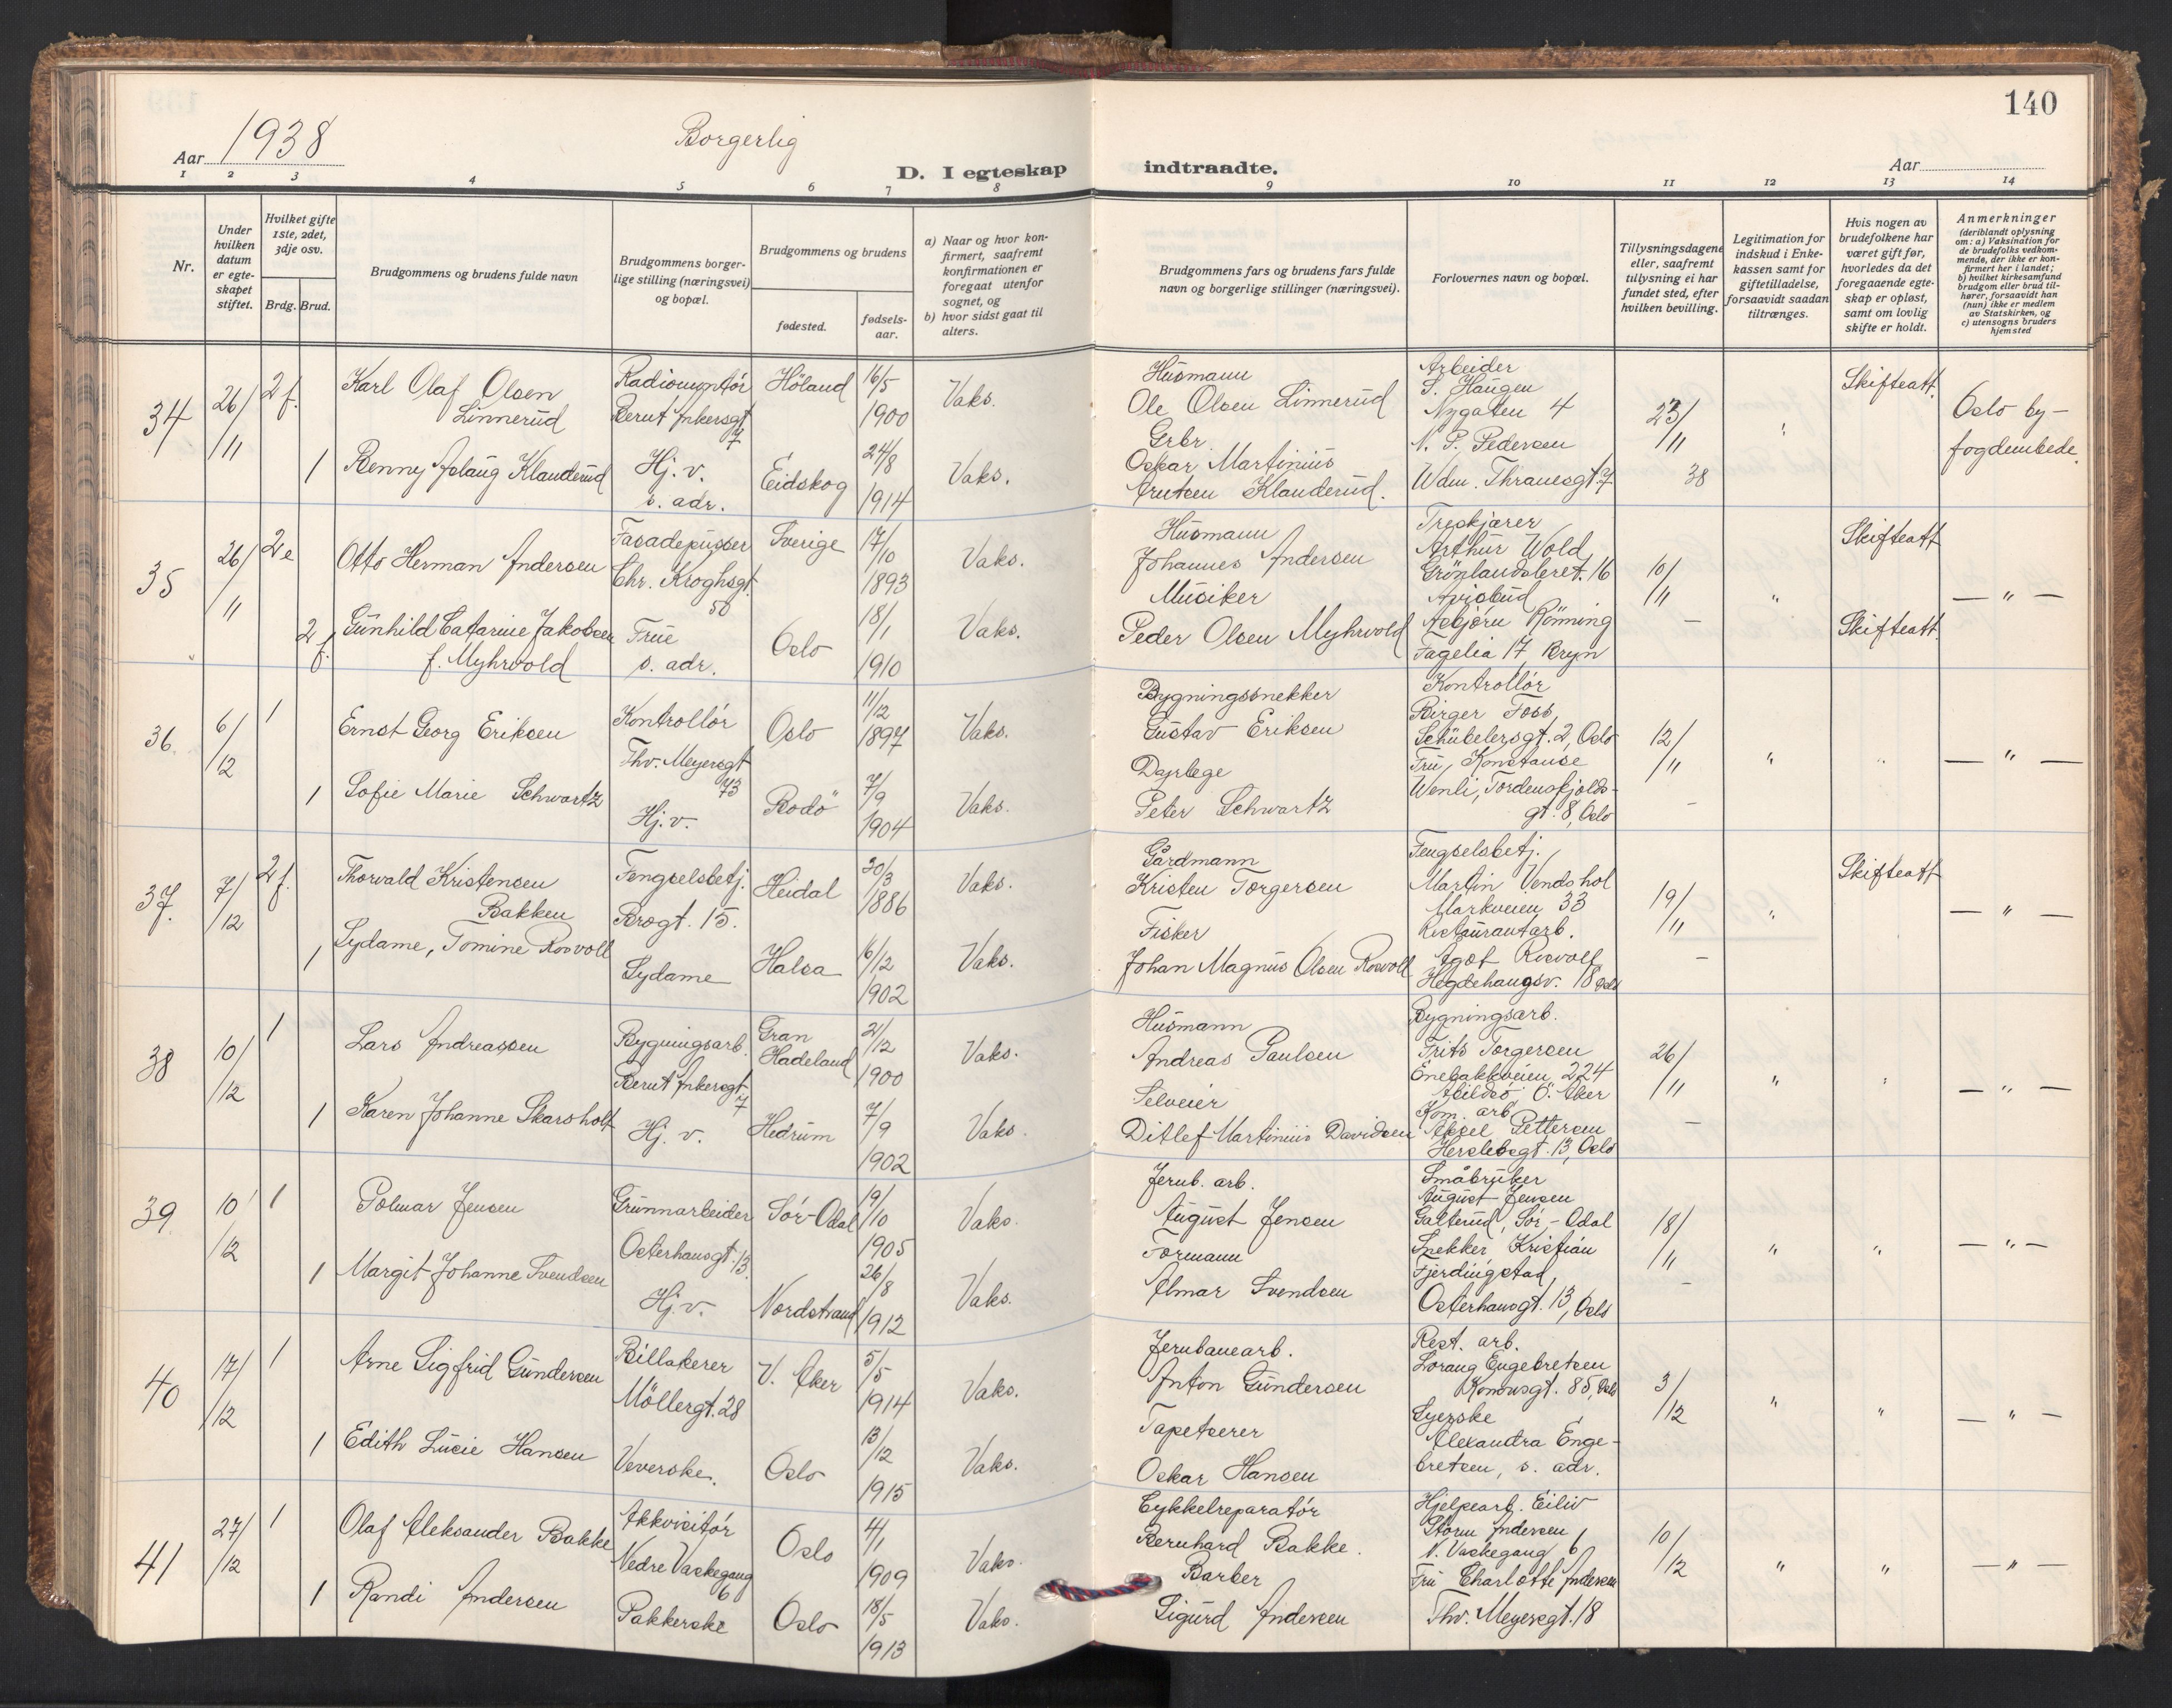 140
Aar 1938
Borgerlig
D. I egteskap indtraadte.
Aar
1 2 3 4 5 6 7 8 9 10 11 12 13 14
Nr.
Under hvilken datum er egteskapet stiftet.
Hvilket gifte 1ste, 2det, 3dje osv.
Brdg. Brud.
Brudgommens og brudens fulde navn
Brudgommens borgerlige stilling (næringsvei) og bopæl.
Brudgommens og brudens
fødested.
fødselsaar.
a) Naar og hvor konfirmert, saafremt konfirmationen er foregaat utenfor sognet, og
b) hvor sidst gaat til alters.
Brudgommens fars og brudens fars fulde navn og borgerlige stillinger (næringsvei).
Forlovernes navn og bopæl.
Tillysningsdagene eller, saafremt tillysning ei har fundet sted, efter hvilken bevilling.
Legitimation for indskud i Enkekassen samt for giftetilladelse, forsaavidt saadan tiltrænges.
Hvis nogen av brudefolkene har været gift før, hvorledes da det foregaaende egteskap er opløst, samt om lovlig skifte er holdt.
Anmerkninger (deriblandt oplysning om: a) Vaksination for de brudefolks vedkommende, der ikke er konfirmert her i landet; b) hvilket kirkesamfund brudgom eller brud tilhører, forsaavidt han (hun) ikke er medlem av Statskirken, og c) utensogns bruders hjemsted
34
26/11
2 f.
Karl Olaf Olsen
Linnerud
Radiomontør
Bernt Ankersgt
7
Høland
16/5
1900
Vaks.
Husmann
Ole Olsen Linnerud
Arbeider
S. Haugen
Nygaten 4
23/11
38
"
Skifteatt.
Oslo by-
fogdembede.
1
Benny Aslaug Klauderud
Hj. v.
s. adr.
Eidskog
24/8
1914
Vaks.
Grbr.
Oskar Martinius
Arntsen Klauderud.
N. P. Pedersen
Wdm. Thranesgt. 7
35
26/11
2 e
Otto Herman Andersen
Fasadepusser
Chr. Kroghsgt.
50
Sverige
17/10
1893
Vaks.
Husmann
Johannes Andersen
Treskjærer
Arthur Wold
Grønlandsleret. 16
10/11
"
Skifteatt
— " —
2 f.
Gunhild Catarine Jakobsen
f. Myhrvold
Frue
s. adr.
Oslo
18/1
1910
Vaks.
Musiker
Peder Olsen Myhrvold
Avisbud
Asbjørn Rønning
Fagelia 17 Bryn
—
Skifteatt.
36.
6/12
1
Ernst Georg Eriksen
Kontrollør
Thv. Meyersgt
73
Oslo
11/12
1897
Vaks.
Bygningssnekker
Gustav Eriksen
Kontrollør
Birger Foss,
Schübelersgt. 2, Oslo
12/11
"
"
— " —
1
Sofie Marie Schwartz
Hj. v.
Bodø
7/9
1904
Vaks.
Dyrlege
Peter Schwartz
Fru, Konstanse
Wenli, Tordenskjolds-
gt. 8, Oslo
—
37.
7/12
2 f.
Thorvald Kristensen
Bakken
Fengselsbetj.
Brogt. 15.
Heidal
30/3
1886
Vaks.
Gårdmann
Kristen Torgersen
Fengselsbetj.
Martin Vendshol
Markveien 33
19/11
"
Skifteatt
— " —
1
Sydame, Tomine Rosvoll
Sydame
Halsa
6/2
1902
Vaks.
Fisker
Johan Magnus Olsen Rosvoll
Restaurantarb.
Agot Rosvoll
Hegdehaugsv. 18 Oslo
—
38
10/12
1
Lars Andreassen
Bygningsarb.
Bernt Ankersgt
7
Gran
Hadeland
21/12
1900
Vaks.
Husmann
Andreas Paulsen
Bygningsarb.
Frits Torgersen
Enebakkveien 224
Abildsø, Ö. Aker
26/11
"
"
— " —
1
Karen Johanne Skarsholt
Hj. v.
Hedrum
7/9
1902
Vaks.
Selveier
Ditlef Martinius Davidsen
Kom. arb.
Aksel Pettersen
Herslebsgt. 13, Oslo
—
39.
10/12
1
Polmar Jensen
Grunnarbeider
Osterhausgt. 13.
Sør-Odal
19/10
1905
Vaks.
Jernb. arb.
August Jensen
Småbruker
August Jensen
Galterud, Sør-Odal
18/11
"
"
— " —
1
Margit Johanne Svendsen
Hj. v.
Nordstrand
26/8
1912
Vaks.
Formann
Almar Svendsen
Snekker Kristian
Fjerdingstad,
Osterhausgt. 13, Oslo
—
40
17/12
1
Arne Sigfrid Gundersen
Billakerer
Möllergt. 28
V. Aker
5/5
1914
Vaks.
Jernbanearb.
Anton Gundersen
Rest. arb.
Lorang Engebretsen
Konowsgt. 85, Oslo
3/12
"
"
— " —
1
Edith Lucie Hansen
Veverske.
Oslo
13/12
1915
Vaks.
Tapetserer
Oskar Hansen
Syerske
Alexandra Enge-
bretsen, s. adr.
41
27/12
1
Olaf Aleksander Bakke
Akkvisitør
Nedre Vaskegang
6
Oslo
4/1
1909
Vaks.
Cykkelreparatør
Bernhard Bakke.
Hjelpearb. Eiliv
Storm Andersen
N. Vaskegang 6
10/12
"
"
— " —
1
Randi Andersen
Pakkerske
Oslo
18/5
1913
Vaks.
Barber
Sigurd Andersen
Fru Charlotte Andersen
Thv. Meyersgt. 18